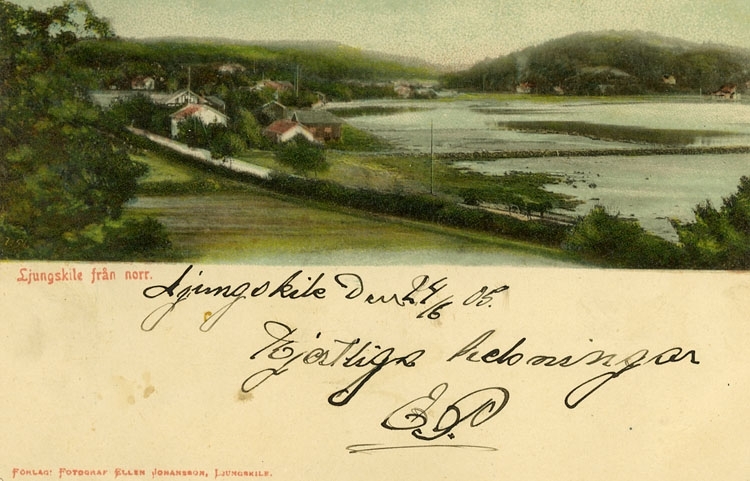 Ljungskile från norr.
Ljungskile Den 24/6 05.
Hjärtliga helsningar
E.P.
FÖRLAG: FOTOGRAF ELLEN JOHANSSON, LJUNGSKILE.